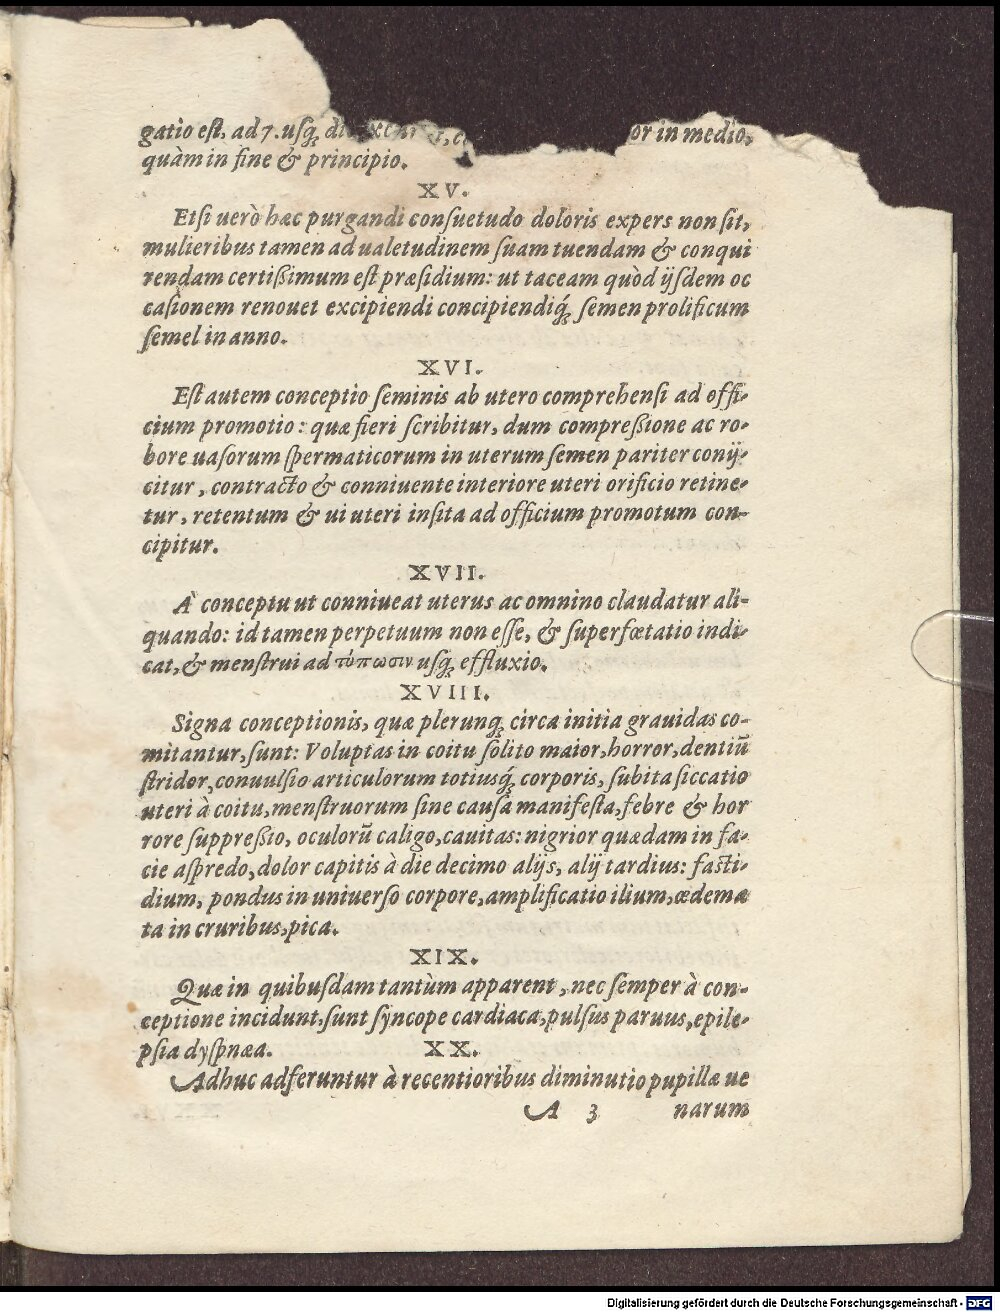 gatio est, ad 7. usq́; or in medio,
quàm in fine & principio.
XV.
Etsi uerò hæc purgandi consuetudo doloris expers non sit,
mulieribus tamen ad ualetudinem suam tuendam & conqui
rendam certißimum est præsidium: ut taceam quòd ijsdem oc
casionem renouet excipiendi concipiendiq́; semen prolificum
semel in anno.
XVI.
Est autem conceptio seminis ab utero comprehensi ad offi-
cium promotio: quæ fieri scribitur, dum compreßione ac ro-
bore uasorum spermaticorum in uterum semen pariter conij-
citur, contracto & conniuente interiore uteri orificio retine-
tur, retentum & ui uteri insita ad officium promotum con-
cipitur.
XVII.
À conceptu ut conniueat uterus ac omnino claudatur ali-
quando: id tamen perpetuum non esse, & superfœtatio indi-
cat, & menstrui ad τύπωσιν usq́; effluxio.
XVIII.
Signa conceptionis, quæ plerunq́; circa initia grauidas co-
mitantur, sunt: Voluptas in coitu solito maior, horror, dentiū
stridor, conuulsio articulorum totiusq́; corporis, subita siccatio
uteri à coitu, menstruorum sine causa manifesta, febre & hor
rore suppreßio, oculorū caligo, cauitas: nigrior quædam in fa-
cie aspredo, dolor capitis à die decimo alijs, alij tardius: fasti-
dium, pondus in uniuerso corpore, amplificatio ilium, œdema
ta in cruribus, pica.
XIX.
Quæ in quibusdam tantùm apparent, nec semper à con-
ceptione incidunt, sunt syncope cardiaca, pulsus paruus, epile-
psia dyspnæa. XX.
Adhuc adferuntur à recentioribus diminutio pupillæ ue
A 3 narum
Digitalisierung gefördert durch die Deutsche Forschungsgemeinschaft - DFG